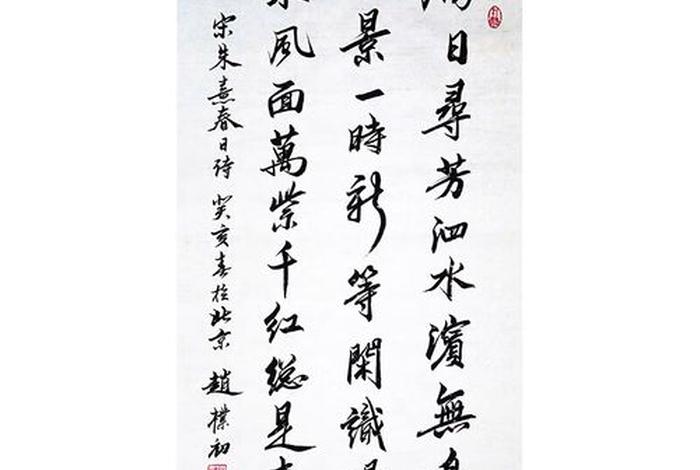 日尋芳泗水濱無
景一時新等閑識
風面萬紫千紅總是
宋朱熹春日詩 癸亥春於北京 趙樸初